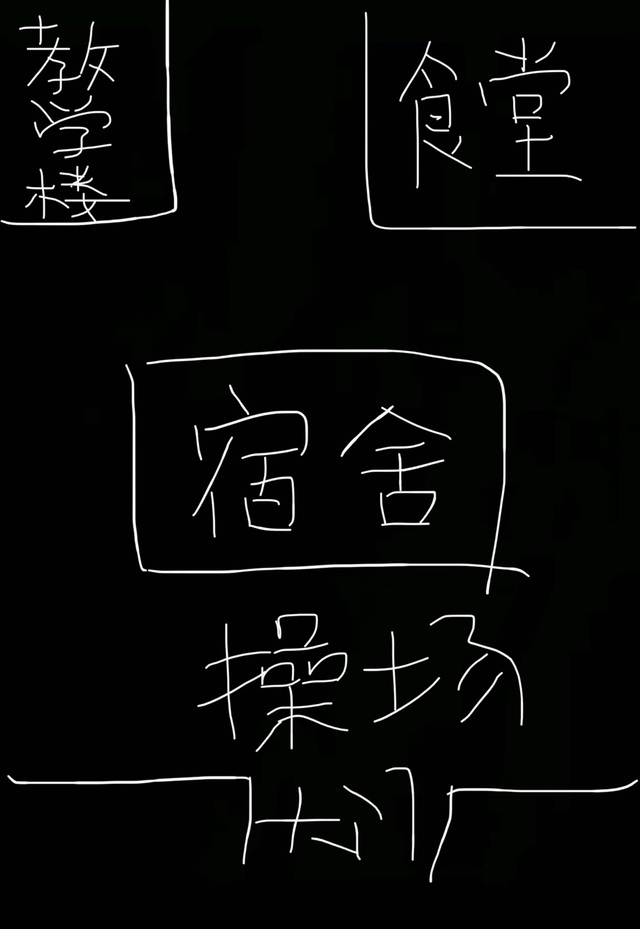 教学楼
食堂
宿舍
操场
大门